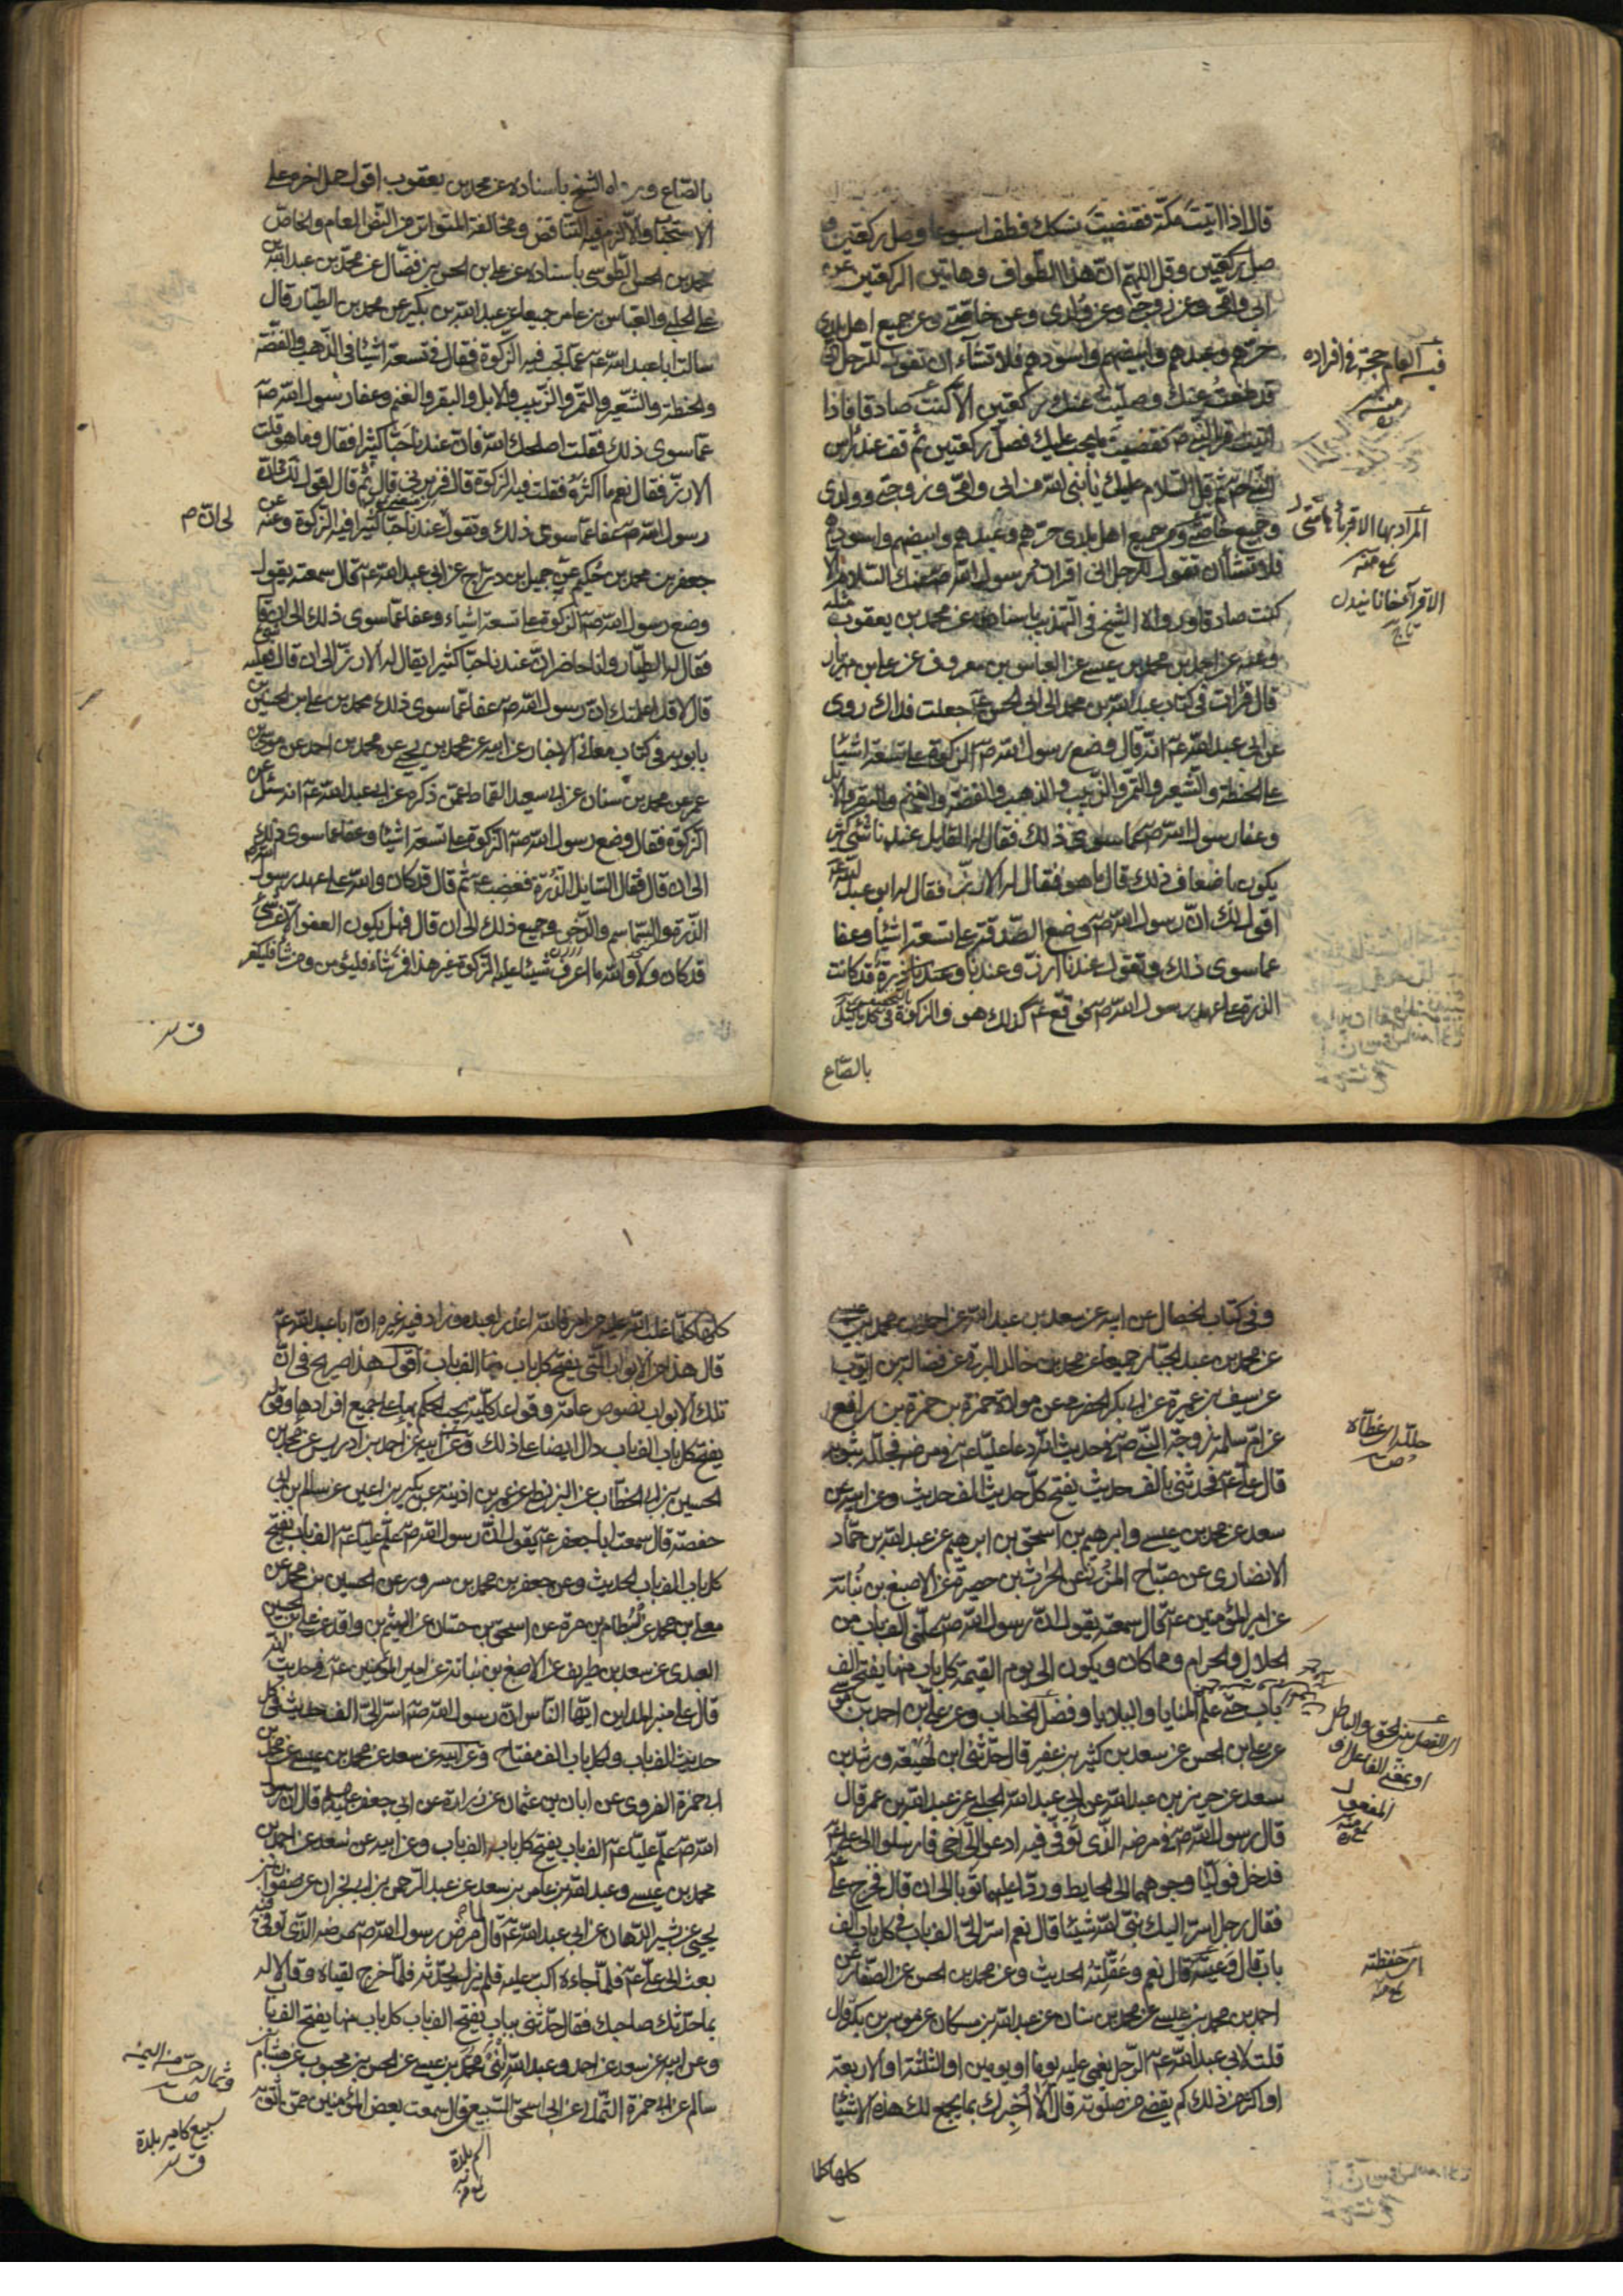 قال اذا اتيت مكّة فقضيت نسكك فطف اسبوعا وصل ركعتين
صل ركعتين وقل اللهمّ انّ هذا الطّواف وهاتين الركعتين عن
ابى وامّى وعن زوجتى وعن ولدى وعن خاصّتى وعن جميع اهل بلدى
حرّهم وعبدهم وابيضهم واسودهم فلا تشآء ان تقول للرّجل
قد طفت عنك وصلّيت عنك ركعتين الّا كنت صادقا فاذا
اتيت قبر النّبى صم فقضيت ما يجب عليك فصلّ ركعتين ثم قف عند راس
النّبى صم ثم قل السّلام عليك يا نبىّ الله من ابى وامّى وزوجتى وولدى
وجميع خاصّتى ومن جميع اهل بلدى حرّهم وعبدهم وابيضهم واسودهم
فلا تشآء ان تقول للرّجل انّى اقرات رسول الله صم عنك السّلام الّا
كنت صادقا ورواه الشيخ فى التهذيب باسناده عن محمد بن يعقوب مثله
وعنه عن احمد بن محمد بن عيسى عن العباس بن معروف عن على بن مهزيار
قال قرات فى كتاب عبد الله بن محمد الى ابى الحسن ع جعلت فداك روى
عن ابى عبد الله عم انّه قال وضع رسول الله صم الزكوة على تسعة اشيآء
على الحنطة والشّعير والتّمر والزّبيب والذّهب والفضّة والغنم والبقر والابل
وعفا رسول الله صم عما سوى ذلك فقال له القايل عندنا شئ كثير
يكون باضعاف ذلك قال ما هو فقال له الارزّ فقال له ابو عبد الله عم
اقول لك انّ رسول الله صم وضع الصّدقة على تسعة اشيآء وعفا
عما سوى ذلك وتقول عندنا ارزّ وعندنا ذرة قد كانت
الذرة على عهد رسول الله صم فوقّع عم كذلك هو والزكوة فى كل ما كيل
بالصّاع
المراد بها الاقربآء
بالصّاع ورواه الشيخ باسناده عن محمد بن يعقوب اقول حمل اخره على
الاستحباب والّا لزم فيه التناقض ومخالفة المتواتر من النّصّ العام والخاصّ
محمد بن الحسن الطّوسى باسناده عن على بن الحسن بن فضّال عن محمّد بن عبد الله بن
على الحلبى والعبّاس بن عامر جميعا عن عبد الله بن بكير عن محمد بن الطيّار قال
سالت ابا عبد الله عم عمّا تجب فيه الزّكوة فقال فى تسعة اشيآء فى الذّهب والفضّة
والحنطة والشّعير والتّمر والزّبيب والابل والبقر والغنم وعفا رسول الله صم
عمّا سوى ذلك فقلت اصلحك الله فانّ عندنا حبّا كثيرا فقال وما هو قلت
الارزّ فقال نعم ما اكثره فقلت فيه الزّكوة قال فزبرنى قال ثم قال اقول لك انّ
رسول الله صم عفا عمّا سوى ذلك وتقول عندنا حبّا كثيرا افيه الزّكوة وعنه عن
جعفر بن محمد بن حكيم عن جميل بن درّاج عن ابى عبد الله عم قال سمعته يقول
وضع رسول الله صم الزكوة على تسعة اشياء وعفا عمّا سوى ذلك الى ان قال
فقال له الطيّار وانا حاضر انّ عندنا حبّا كثيرا يقال له الارزّ الى ان قال
قال لا قد اعلمتك انّ رسول الله صم عفا عمّا سوى ذلك محمد بن على بن الحسين بن
بابويه فى كتاب معانى الاخبار عن ابيه عن محمد بن يحيى عن محمد بن احمد عن موسى بن
عمر عن محمد بن سنان عن ابى سعيد القماط عمّن ذكره عن ابى عبد الله عم انه سئل عن
الزّكوة فقال وضع رسول الله صم الزّكوة على تسعة اشيآء وعفا عما سوى ذلك
الى ان قال فقال السّايل الذّرة فغضب عم ثم قال قد كان والله على عهد رسول الله صم
الذّرة والسّماسم والدّخن وجميع ذلك الى ان قال فهل يكون العفو الّا عن شئ
قد كان ولا والله ما اعرف شيئا عليه الزّكوة غير هذا فمن شاء فليؤمن ومن شآء فليكفر
وفى كتاب الخصال عن ابيه عن سعد بن عبد الله عن احمد بن محمد بن عيسى
عن محمد بن عبد الجبّار جميعا عن محمد بن خالد البرقى عن فضالة بن ايّوب
عن سيف بن عميرة عن ابى بكر الحضرمى عن مولاه حمزة بن رافع
عن امّ سلمة زوجة النّبى صم فى حديث انّه دعا عليّا عم فى مرضه فجلّله بثوبه
قال على عم فحدثنى بالف حديث يفتح كلّ حديث الف حديث وعن ابيه عن
سعد عن محمد بن عيسى وابراهيم بن اسحق بن ابراهيم عن عبد الله بن حمّاد
الانصارى عن صبّاح المزنى عن الحرث بن حصيرة عن الاصبغ بن نباتة
عن امير المؤمنين عم قال سمعته يقول انّ رسول الله صم علّمنى الف باب من
الحلال والحرام ومما كان ويكون الى يوم القيمة كل باب منها يفتح الف
باب حتّى علم المنايا والبلايا وفصل الخطاب وعن على بن احمد بن موسى
عن على بن الحسن عن سعد بن كثير بن عفير قال حدّثنى ابن لهيعة ورشد بن
سعد عن حريز بن عبد الله عن ابى عبد الله البجلى عن عبد الله بن عمر قال
قال رسول الله صم فى مرضه الّذى توفّى فيه ادعوا الىّ اخى فارسلوا الى على عم
فدخل فولّيا وجوههما الى الحايط وردّا عليهما ثوبا الى ان قال فخرج على
فقال رجل اسرّ اليك نبىّ الله شيئا قال نعم اسرّ الىّ الف باب فى كل باب الف
باب قال وعيته قال نعم وعقلته الحديث وعن محمد بن الحسن عن الصّفّار عن
احمد بن محمد بن عيسى عن محمد بن سنان عن عبد الله بن مسكان عن موسى بن بكر قال
قلت لابى عبد الله عم الرّجل يغمى عليه يوما او يومين او الثلثة او الاربعة
او اكثر من ذلك كم يقضى من صلوته قال الا اخبرك بما يجمع لك هذه الاشيآء
كلها كلما
جلله اى غطّاه
اى حفظته
كلها كلّما غلب الله عليه من امر فالله اعذر لعبده وزاد فيه غيره انّ ابا عبد الله عم
قال هذا من الابواب الّتى يفتح كل باب منها الف باب اقول هذا صريح فى انّ
تلك الابواب نصوص عامة وقواعد كليّة يجب الحكم بها على جميع افرادها وقوله
يفتح كل باب الف باب دال ايضا على ذلك وعن ابيه عن احمد بن ادريس عن محمد بن
الحسين بن ابى الخطّاب عن البزنطى عن عمر بن اذينة عن بكير بن اعين عن سالم بن ابى
حفصة قال سمعت ابا جعفر عم يقول انّ رسول الله صم علّم عليّا عم الف باب يفتح
كل باب الف باب الحديث وعن جعفر بن محمد بن مسرور عن الحسين بن محمد عن
معلى بن محمد عن بسطام بن مرة عن اسحق بن حسّان عن الهيثم بن واقد عن على بن الحسن
العبدى عن سعد بن طريف عن الاصبغ بن نباتة عن امير المؤمنين عم فى حديث انّه
قال على منبر المداين ايّها النّاس انّ رسول الله صم اسرّ الىّ الف حديث فى كل
حديث الف باب ولكل باب الف مفتاح وعن ابيه عن سعد عن محمد بن عيسى عن محمد بن
ابى حمزة الفروى عن ابان بن عثمان عن زرارة عن ابى جعفر عليه السلام قال ان رسول
الله صم علّم عليّا عم الف باب يفتح كل باب الف باب وعن ابيه عن سعد عن احمد بن
محمد بن عيسى وعبد الله بن عامر بن سعد عن عبد الرّحمن بن ابى نجران عن صفوان بن
يحيى عن بشير الدّهان عن ابى عبد الله عم قال لما مرض رسول الله صم مرضه الذّى توفّى فيه
بعث الى على عم فلمّا جاءه اكبّ عليه فلم يزل يحدّثه فلمّا خرج لقياه وقالا له
بما حدّثك صاحبك فقال حدّثنى بباب يفتح الف باب كل باب منها يفتح الف باب
وعن ابيه عن سعد عن احمد وعبد الله ابنى محمد بن عيسى عن الحسن بن محبوب عن هشام بن
سالم عن ابى حمزة الثّمالى عن ابى اسحق السّبيعى قال سمعت بعض المؤمنين ممّن يثق به
سبيع كامير بلدة
اسم بلدة